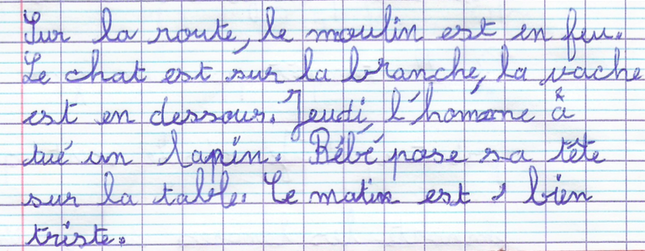 Sur la route, le moulin est en feu.
Le chat est sur la branche, la vache
est en dessous. Jeudi, l'homme â
tué un lapin. Bébé pose sa tête
sur la table. Le matin est bien
triste.